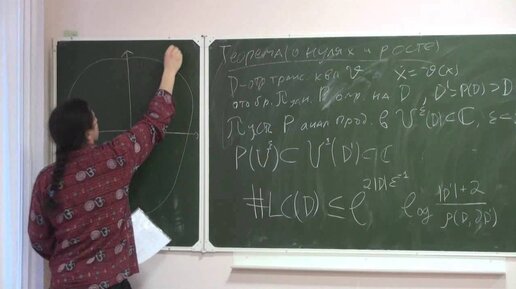 Теорема (о нулях и росте)
D-отр транс. к ва v ẋ = v(x)
отобр. Пуан. P опр. на D, D'=P(D) ⊃ D
Пусть P анал прод. в U^ε(D)⊂ℂ, ε<
P(U^ε) ⊂ U^1(D') ⊂ ℂ
#LC(D) ≤ e^{2|D|ε^{-1}} log (|D'|+2)/(ρ(D,∂D))